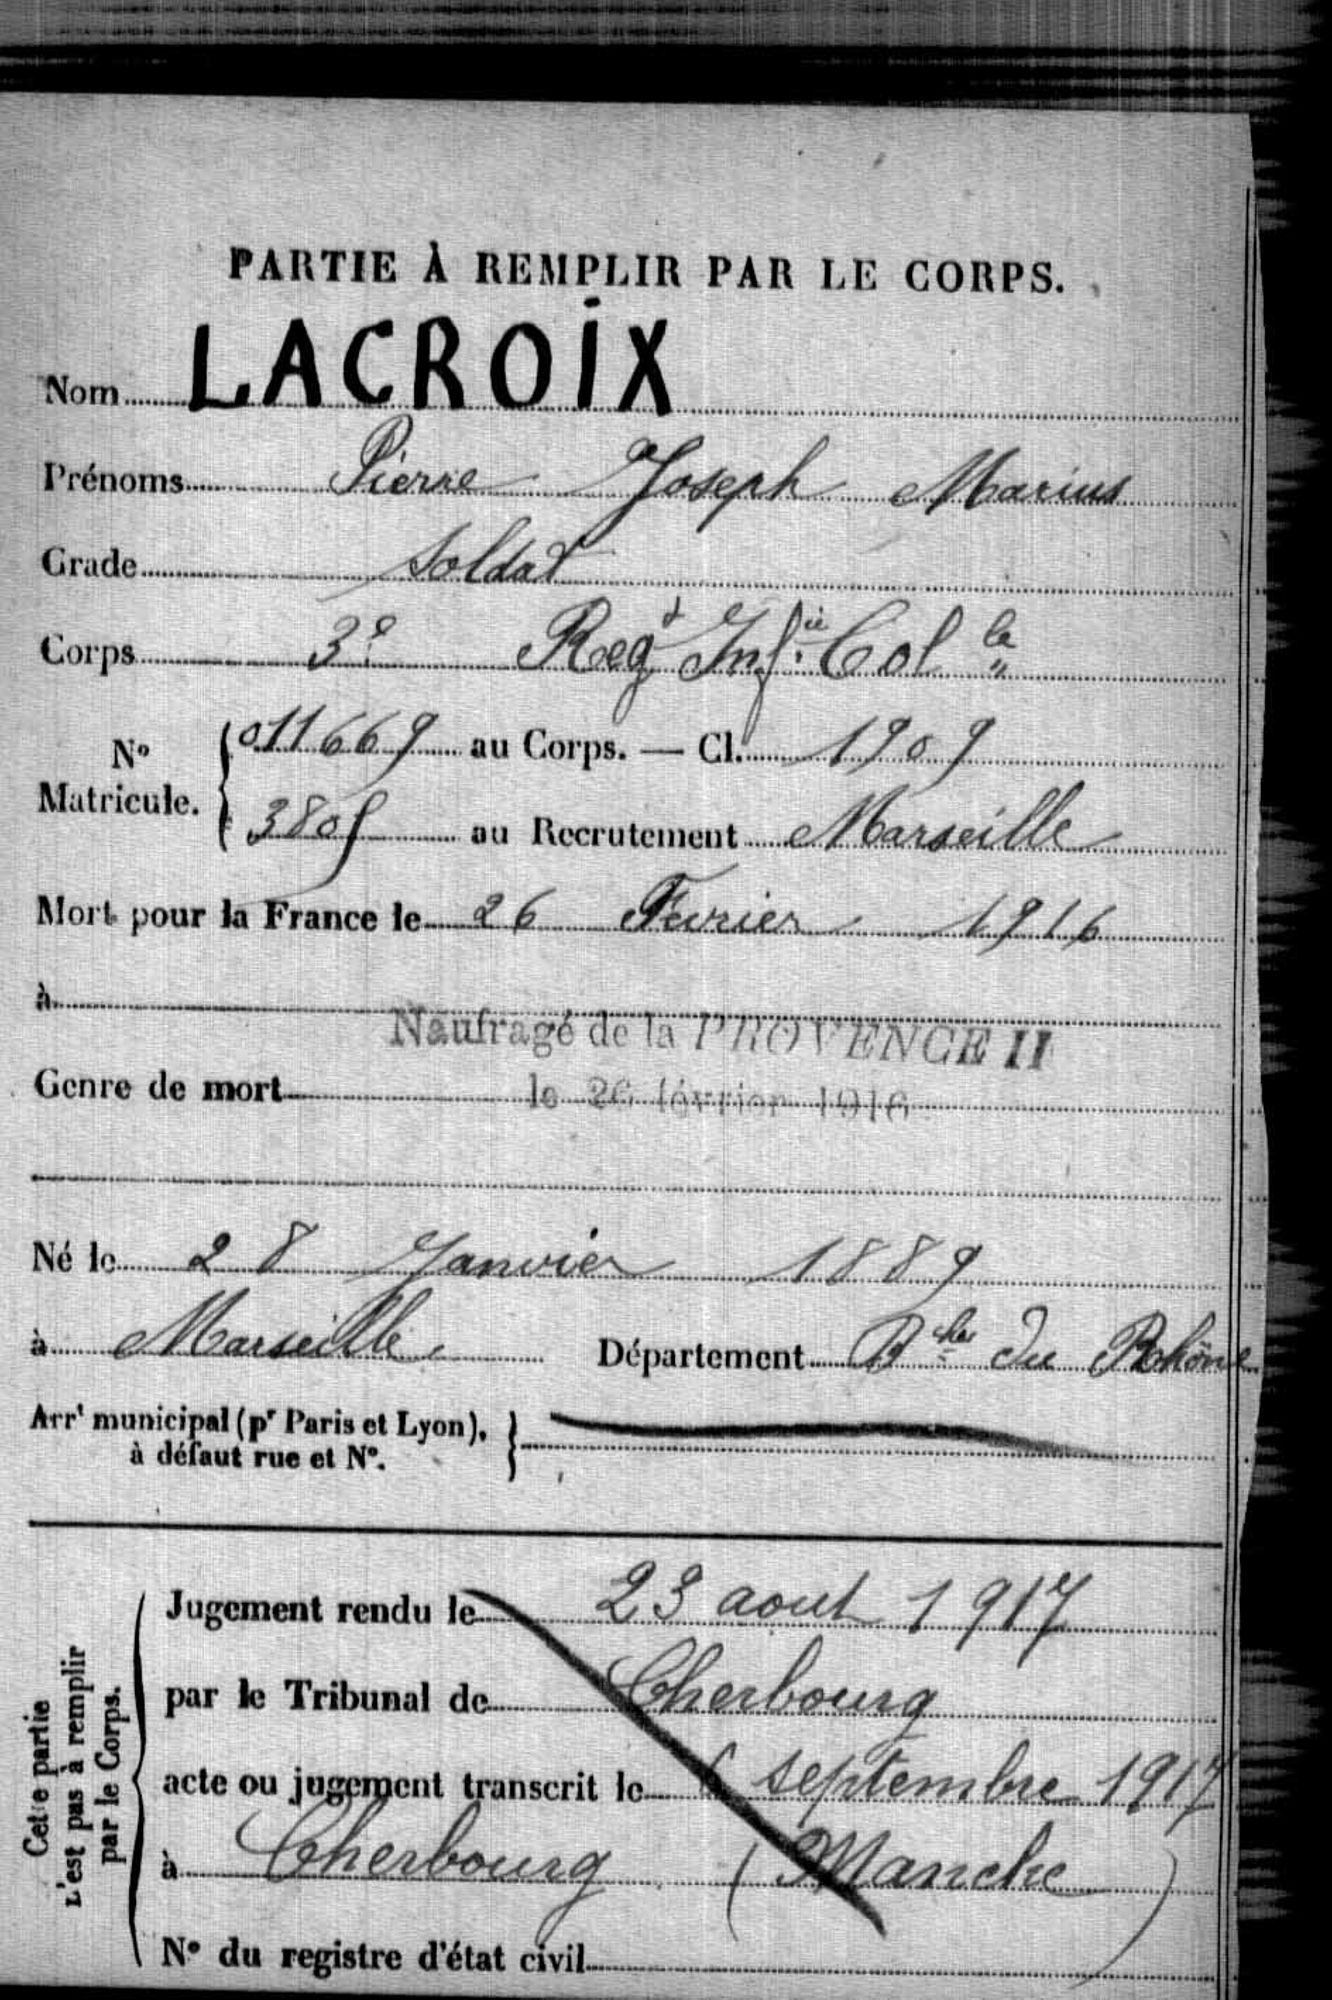 PARTIE À REMPLIR PAR LE CORPS.
Nom LACROIX
Prénoms Pierre Joseph Marius
Grade Soldat
Corps 3e Regt Infie Col le
No Matricule. 011669 au Corps. — Cl. 1909
au Recrutement Marseille
Mort pour la France le 26 Fevrier 1916
à
Naufragé de la PROVENCE II
Genre de mort le 26 février 1916
Né le 28 Janvier 1889
à Marseille Département Bches du Rhône
Arrt municipal (pr Paris et Lyon),
à défaut rue et No.
Cette partie
n'est pas à remplir
par le Corps.
Jugement rendu le 23 aout 1917
par le Tribunal de Cherbourg
acte ou jugement transcrit le septembre 1917
à Cherbourg (Manche)
No du registre d'état civil